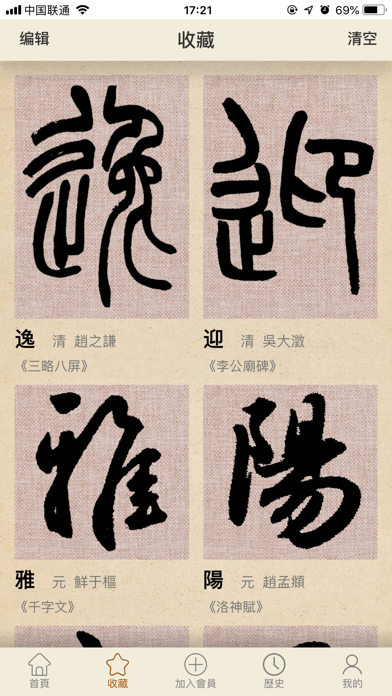 中国联通 17:21 69%
编辑 收藏 清空
逸 迎
逸 清 趙之謙 迎 清 吳大澂
《三略八屏》 《李公廟碑》
雅 陽
雅 元 鮮于樞 陽 元 趙孟頫
《千字文》 《洛神賦》
首頁 收藏 加入會員 歷史 我的